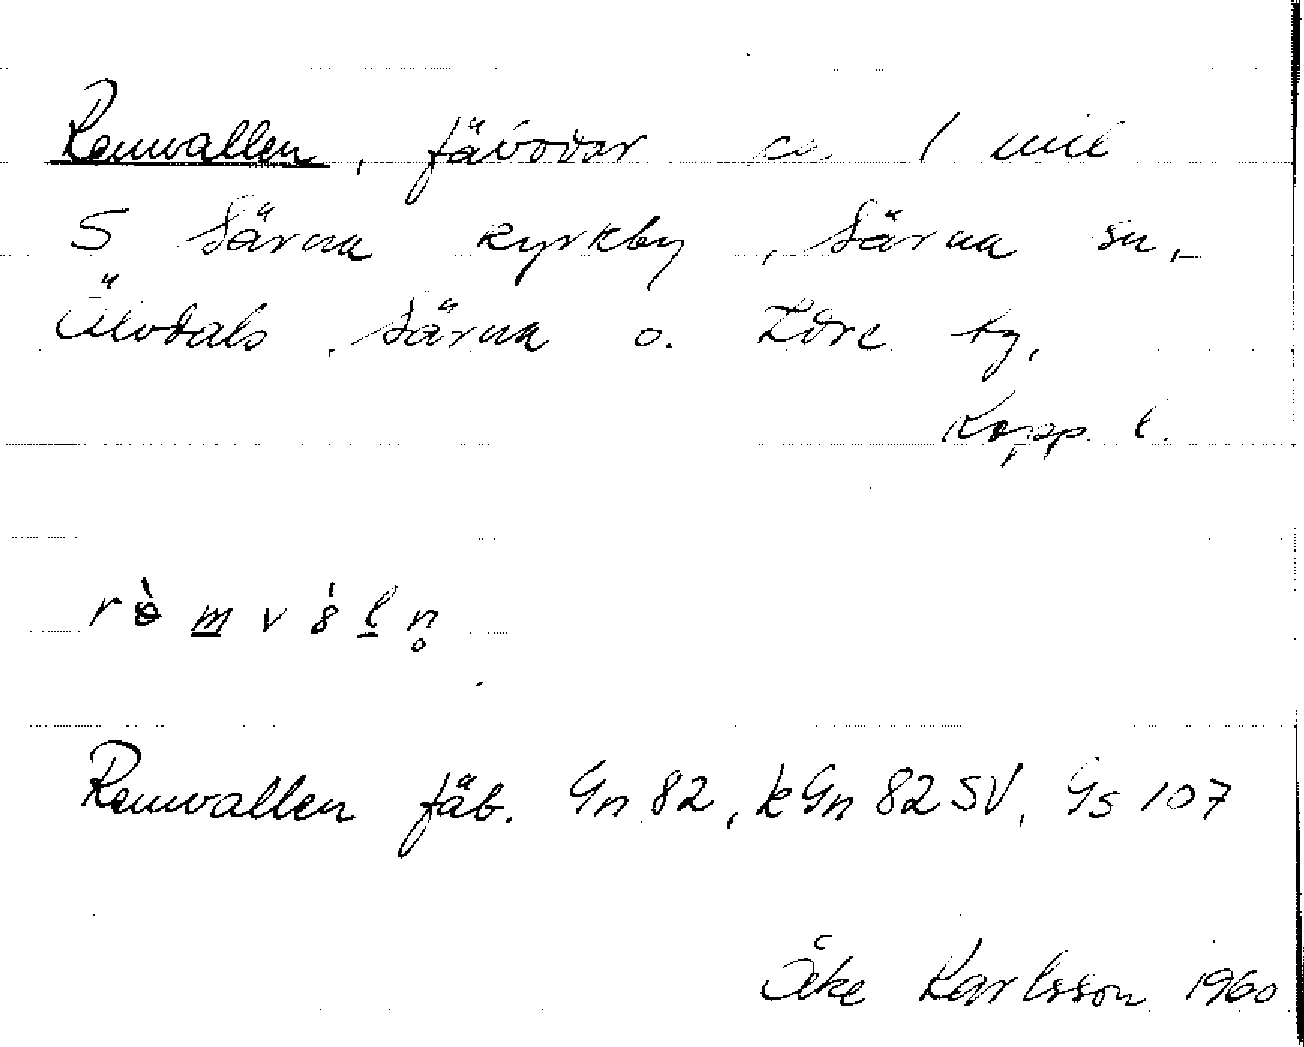 Remvallen, fäbodar ca 1 mil
S Särna kyrkby, Särna sn,
Älvdals, Särna o. Idre tg,
Kopp. l.
Remvallen fäb. Gn 82, kGn 82 SV, Gs 107
Åke Karlsson 1960